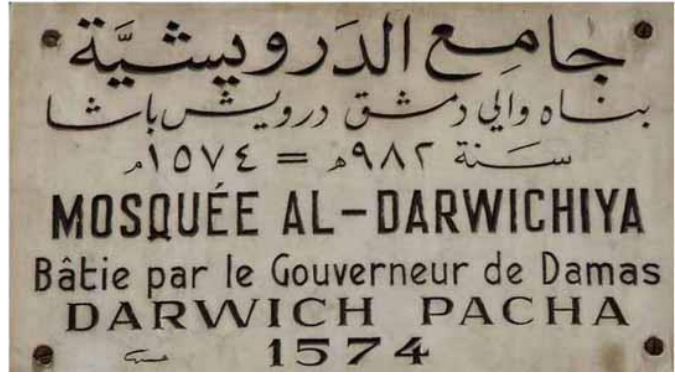 جامِع الدَرويشيَّة
بناه والي دمشق درويش باشا
سنة ٩٨٢هـ = ١٥٧٤م
MOSQUÉE AL-DARWICHIYA
Bâtie par le Gouverneur de Damas
DARWICH PACHA
1574